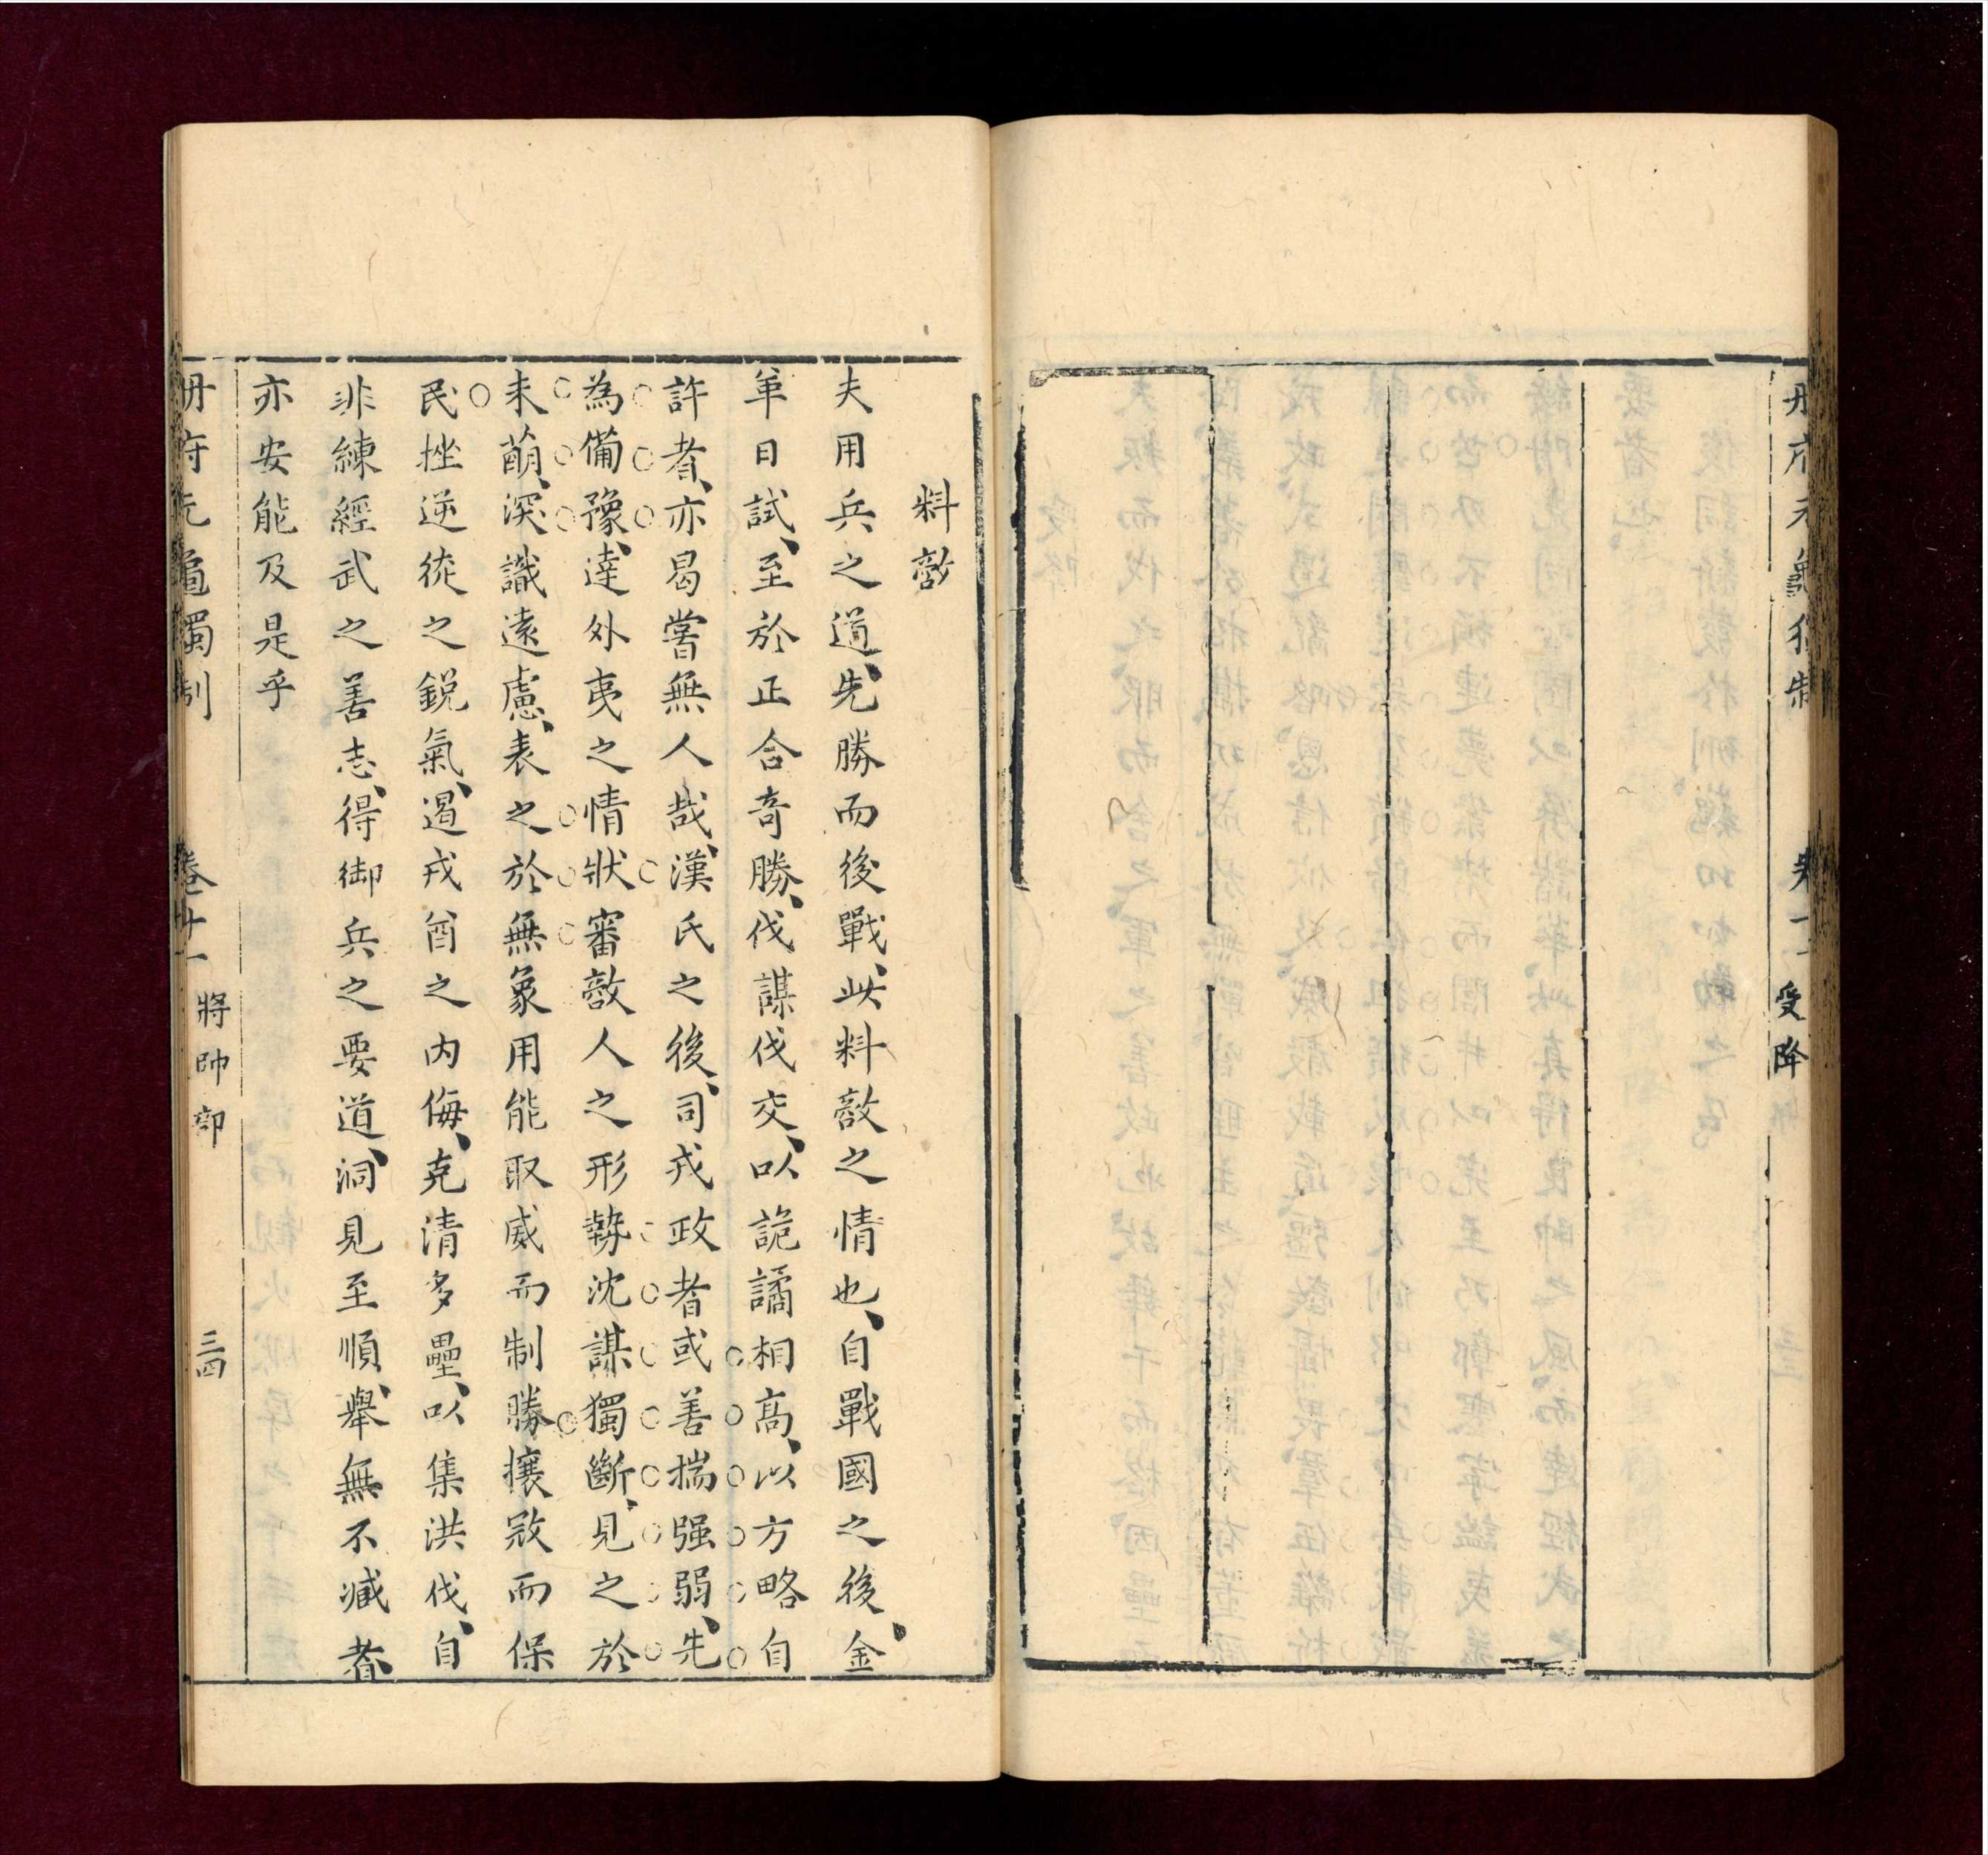 冊府元龜獨制 卷廿一 受降
料敵
夫用兵之道、先勝而後戰、此料敵之情也、自戰國之後、金
革日試、至於正合奇勝、伐謀伐交、以詭譎相高、以方略自
許者、亦曷嘗無人哉、漢氏之後、司戎政者或善揣强弱、先
為備豫、達外夷之情狀審敵人之形勢沈謀獨斷、見之於
未萠、深識遠慮、表之於無象用能取威而制勝攘冦而保
民挫逆徒之鋭氣、遏戎酋之内侮、克清多壘、以集洪伐、自
非練經武之善志、得御兵之要道、洞見至順、舉無不臧者、
亦安能及是乎
冊府元龜獨制 卷廿一 將帥部 三四